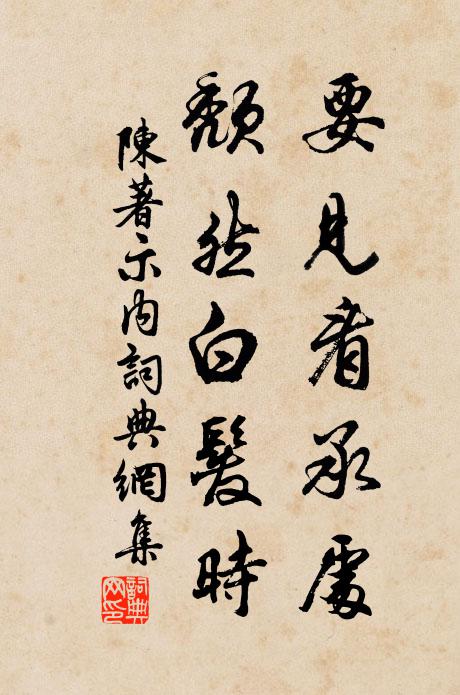 要見看承處
頹然白髮時
陳著示内詞典網集
詞典网印